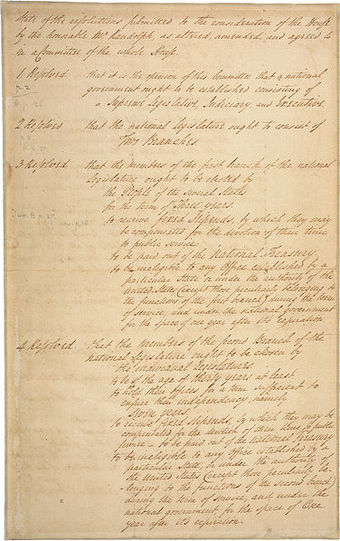 State of the resolutions submitted to the consideration of the House
by the honorable Mr. Randolph, as altered, amended, and agreed to
in a Committee of the whole House.
1. Resolved that it is the opinion of this Committee that a national
government ought to be established consisting of
a Supreme Legislative, Judiciary, and Executive.
2. Resolved that the national Legislature ought to consist of
Two Branches.
3. Resolved that the Members of the first branch of the national
Legislature ought to be elected by
the People of the several States
for the term of Three years.
to receive fixed stipends, by which they may
be compensated for the devotion of their time
to public service
to be paid out of the National Treasury.
to be ineligible to any Office established by a
particular State or under the authority of the
United States (except those peculiarly belonging to
the functions of the first branch) during the term
of service, and under the national government
for the space of one year after its expiration.
4. Resolved that the Members of the second Branch of the
national Legislature ought to be chosen by
the individual Legislatures
to be of the age of thirty years at least.
to hold their offices for a term sufficient to
ensure their independency, namely
seven years.
to receive fixed stipends, by which they may be
compensated for the devotion of their time to public
service - to be paid out of the National Treasury
to be ineligible to any office established by a
particular State, or under the authority of
the United States (except those peculiarly be-
longing to the functions of the second branch)
during the term of service, and under the
national government, for the space of One
year after its expiration.